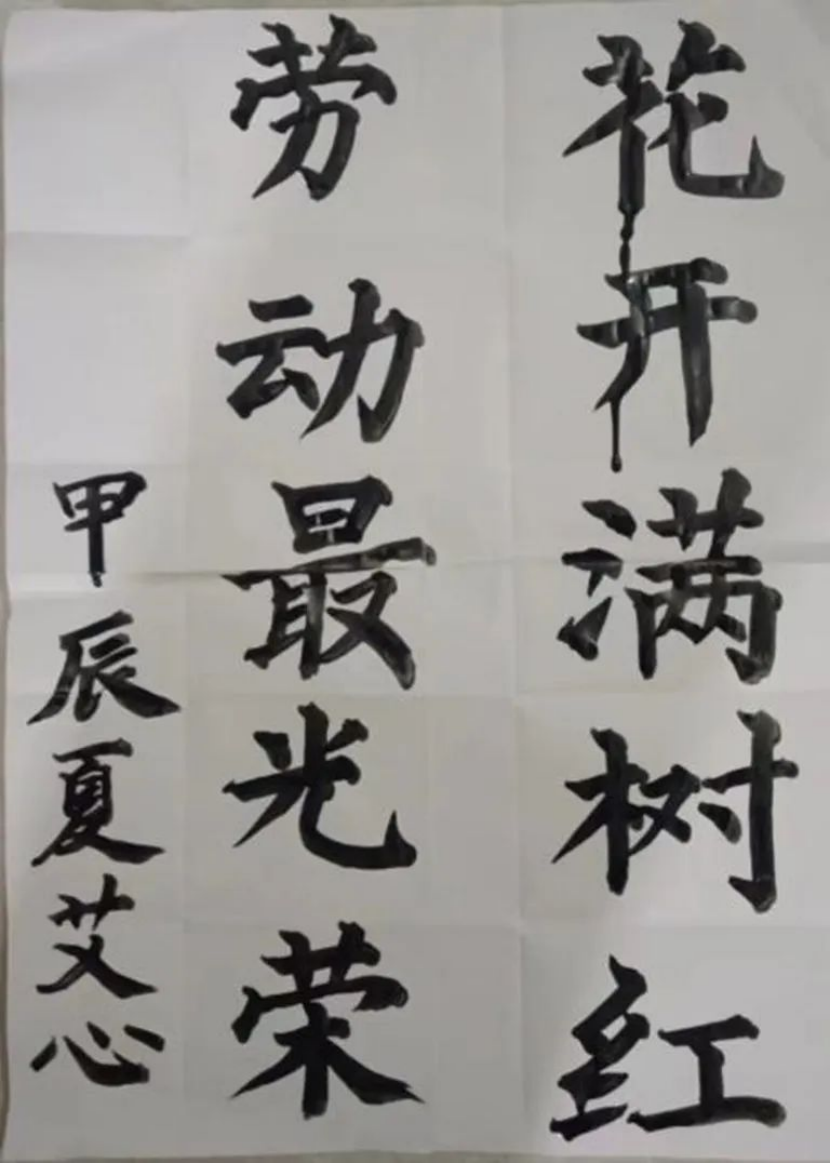 花开满树红
劳动最光荣
甲辰夏艾心